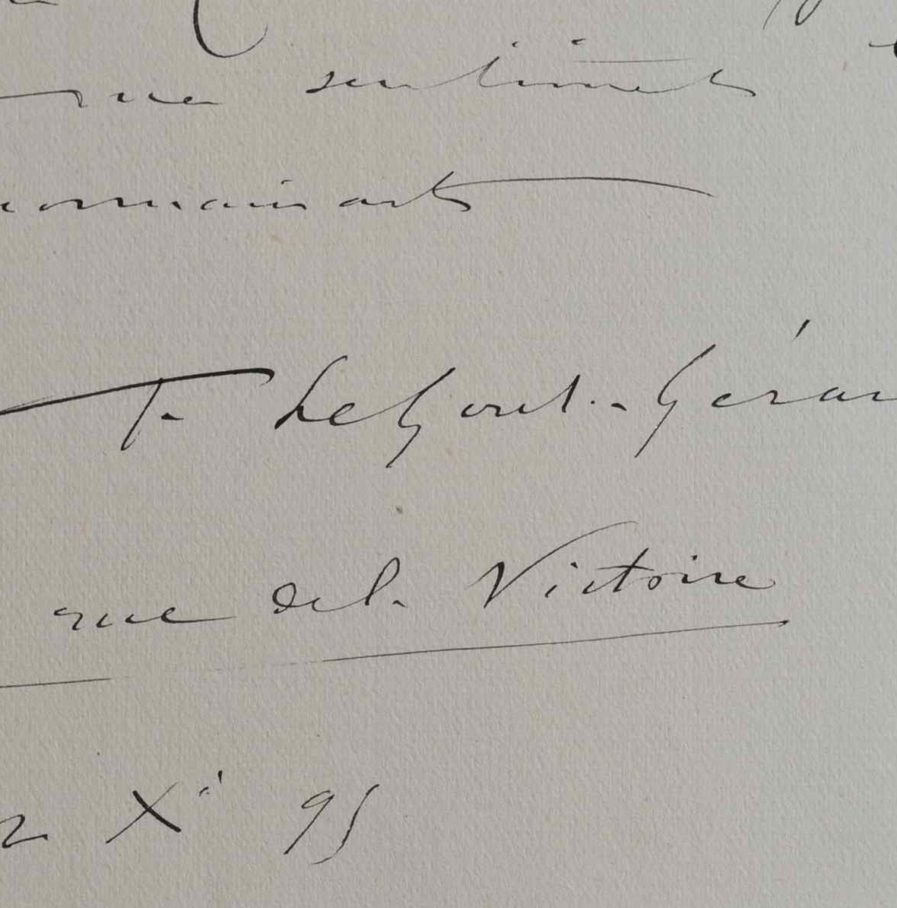 que sentiments
reconnaissants
F. Le Gout-Gérar
rue de la Victoire
2 Xᵇʳ 95